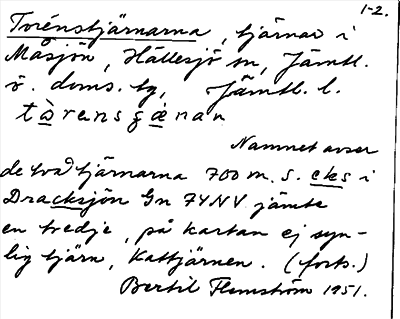 1-2.
Torénstjärnarna, tjärnar i
Måsjön, Hällesjö sn, Jämtl.
ö. doms. tg, Jämtl. l.
tȧ̀rensɕænan
Namnet avser
de två tjärnarna 700 m. S. cks i
Dracksjön Gn 74NV jämte
en tredje, på kartan ej syn-
lig tjärn, Kattjärnen. (forts.)
Bertil Flemström 1951.